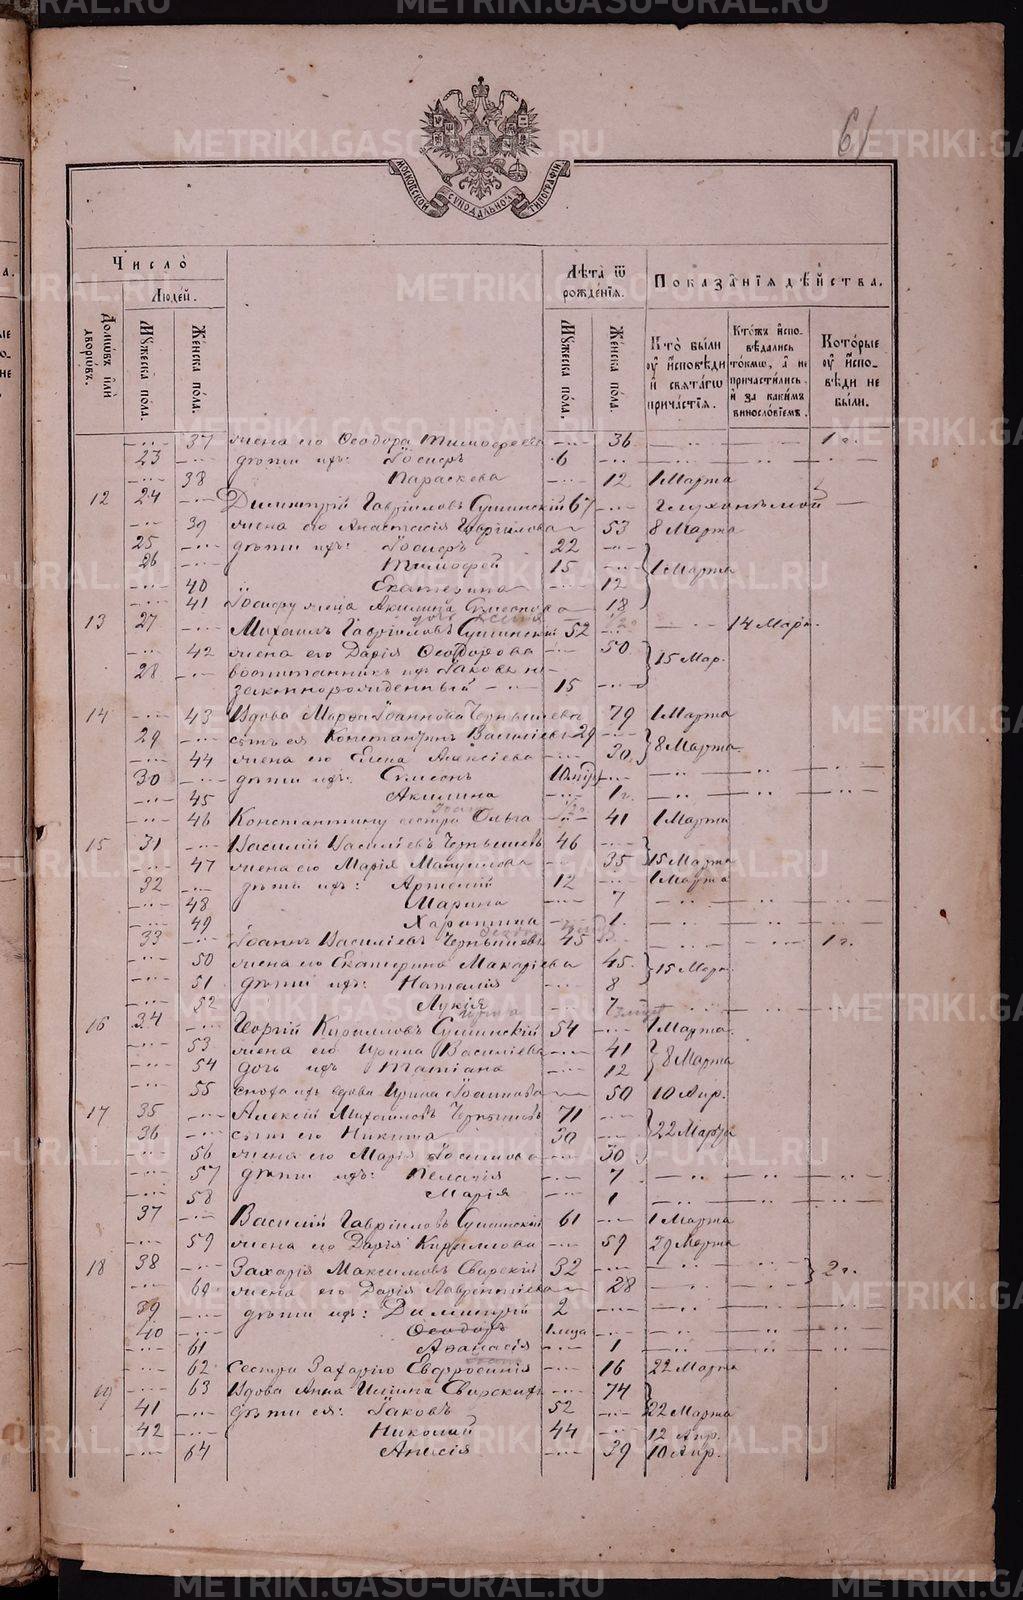 METRIKI.GASO-URAL.RU
61
МОСКОВСКОЙ СѴНОДАЛЬНОЙ ТИПОГРАФІИ
Число̀
Людей.
Домѡвъ илѝ дворѡвъ.
Мꙋжеска пола.
Женска пола.
Лѣта̀ ѿ рожде́нїѧ.
Мꙋжеска пола.
Женска пола.
Показа̑нїѧ дѣ́йства.
Кто̀ бы́ли оу̓ и҆́сповѣди и҆ свѧта́гѡ прича́стїѧ.
Кто́жъ и҆спо-вѣдались то́кмѡ, а҆ не причасти́лись и҆ за каки́мъ винослѡ́вїемъ.
Кото́рые оу̓ и҆́спо-вѣди не бы́ли.
37 жена его Ѳеодора Тимофеева 36 1 г.
23 дѣти ихъ: Іосифъ 6
38 Параскева 12 1 Марта
12 24 Димитрій Гавріиловъ Сушинскій 67 Глухонѣмой
39 жена его Анастасія Гавріилова 53 8 Марта
25 дѣти ихъ: Іосифъ 22
26 Тимофей 15 1 Марта
40 Екатерина 12
41 Іосифу жена Акилина 18
13 27 Михаилъ Гавріиловъ Сушинскій 52 14 Март.
42 жена его Дарія Ѳеодорова 50 15 Мар.
28 воспитанникъ ихъ Іаковъ не-
законнорожденный 15
14 43 Вдова Марѳа Іоаннова Чернышева 79 1 Марта
29 сынъ ея Константинъ Василіевъ 29 8 Марта
44 жена его Елена Алексіева 30
30 дѣти ихъ: Симеонъ
45 Акилина 1 г.
46 Константину сестра Ольга 41 1 Марта
15 31 Василій Василіевъ Чернышевъ 46
47 жена его Марія Мануилова 35 15 Марта
32 дѣти ихъ: Артемій 12 1 Марта
48 Марина 7
49 Харитина 1
33 Іоаннъ Василіевъ Чернышевъ 45 1 г.
50 жена его Екатерина Макаріева 45 15 Март.
51 дѣти ихъ: Наталія 8
52 Лукія 7
16 34 Георгій Кирилловъ Сушинскій 54 1 Марта
53 жена его Ирина Василіева 41 8 Марта
54 дочь ихъ Татіана 12
55 сноха ихъ вдова Ирина Іоаннова 50 10 Апр.
17 35 Алексій Михаиловъ Чернышевъ 71
36 сынъ его Никита 30 22 Марта
56 жена его Марія Іосифова 30
57 дѣти ихъ: Пелагія 7
58 Марія 1
37 Василій Гавріиловъ Сушинскій 61 1 Марта
59 жена его Дарія Кириллова 59 29 Марта
18 38 Захарія Максимовъ Свирскій 32 2 г.
60 жена его Дарія Лаврентіева 28
39 дѣти ихъ: Димитрій 2
40 Ѳеодоръ
61 Аѳанасія 1
62 Сестра Захарію Евфросинія 16 22 Марта
19 63 Вдова Анна Ильина Свирскихъ 74
41 дѣти ея: Іаковъ 52 22 Марта
42 Николай 44 12 Апр.
64 Анисія 39 10 Апр.